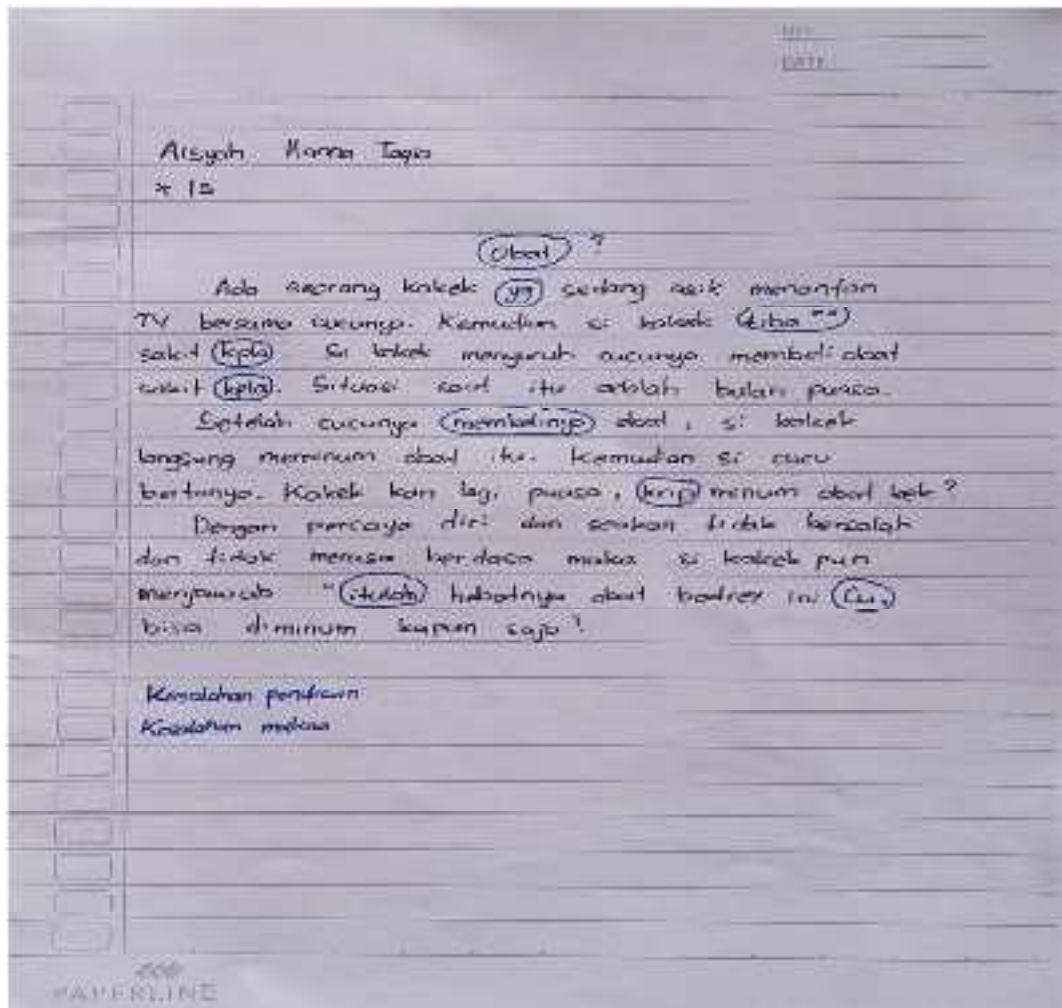 NO.
DATE :
Aisyah Hanna
* 15
Obat ?
Ada seorang kakek yg sedang asik menonton
TV bersama cucunya. Kemudian si kakek tiba ""
sakit kpla Si kakek menyuruh cucunya membeli obat
sakit kpla. Situasi saat itu adalah bulan puasa.
Setelah cucunya membelinya obat, si kakek
langsung meminum obat itu. Kemudian si cucu
bertanya. Kakek kan lagi puasa, minum obat kek ?
Dengan percaya diri dan seakan tidak bersalah
dan tidak merasa berdosa maka si kakek pun
menjawab "itulah hebatnya obat bodrex ini Cu,
bisa diminum kapan saja"
Kesalahan penulisan
Kesalahan makna
PAPERLINE